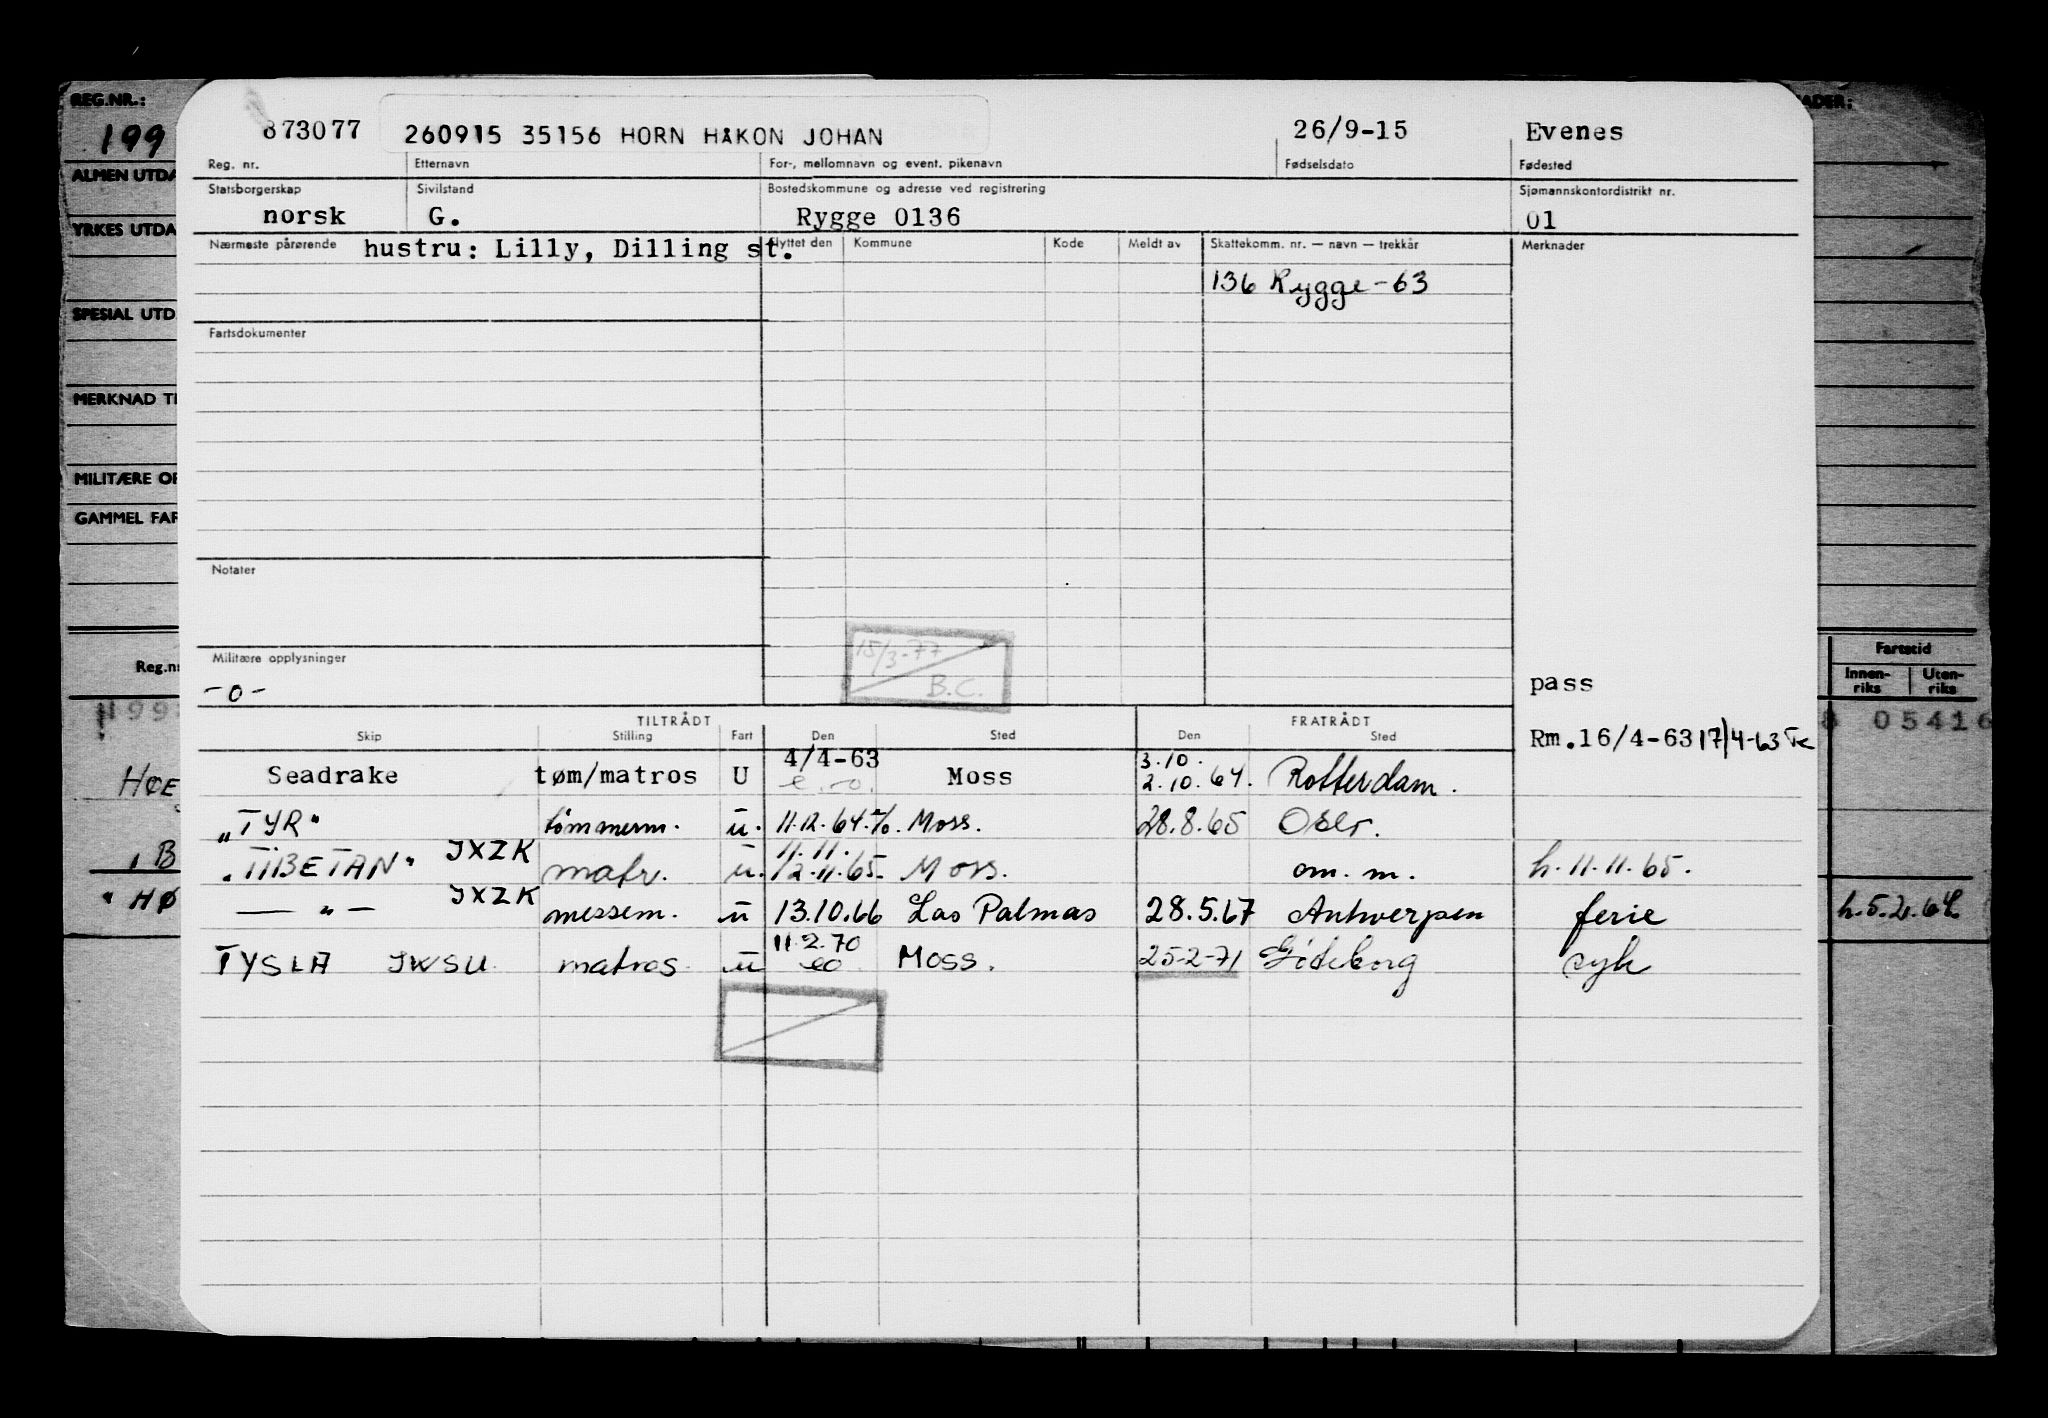 REG.NR.:
199
ALMEN UTDA
YRKES UTDA
SPESIAL UTD
MERKNAD TI
MILITÆRE OP
GAMMEL FAR
Reg.nr
199
HOE
B
" HØ
873077 260915 35156 HORN HÅKON JOHAN 26/9-15 Evenes
Reg. nr. Etternavn For-, mellomnavn og event. pikenavn Fødselsdato Fødested
Statsborgerskap Sivilstand Bostedskommune og adresse ved registrering Sjømannskontordistrikt nr.
norsk G. Rygge 0136 01
Nærmeste pårørende hustru: Lilly, Dilling st. Flyttet den Kommune Kode Meldt av Skattekomm. nr. — navn — trekkår Merknader
136 Rygge-63
Fartsdokumenter
Notater
15/3-77
B.C.
Militære opplysninger
-o-
pass
TILTRÅDT FRATRÅDT
Skip Stilling Fart Den Sted Den Sted
Rm.16/4-63 17/4-63
4/4-63 3.10.
Seadrake tøm/matros U Moss 2.10.64. Rotterdam.
"TYR" tömmerm. u. 11.12.64. Moss. 28.8.65 Oslo.
11.11.
"TIBETAN" JXZK matr. u. 12.11.65. Moss. om. m. h. 11.11.65.
— " — JXZK messem. u 13.10.66 Las Palmas 28.5.67 Antwerpen ferie
11.2.70
TYSLA JWSU. matros. u eo Moss. 25-2-71 Göteborg syk
ADER:
Fartstid
Innen-riks Uten-riks
05416
h.5.2.64.